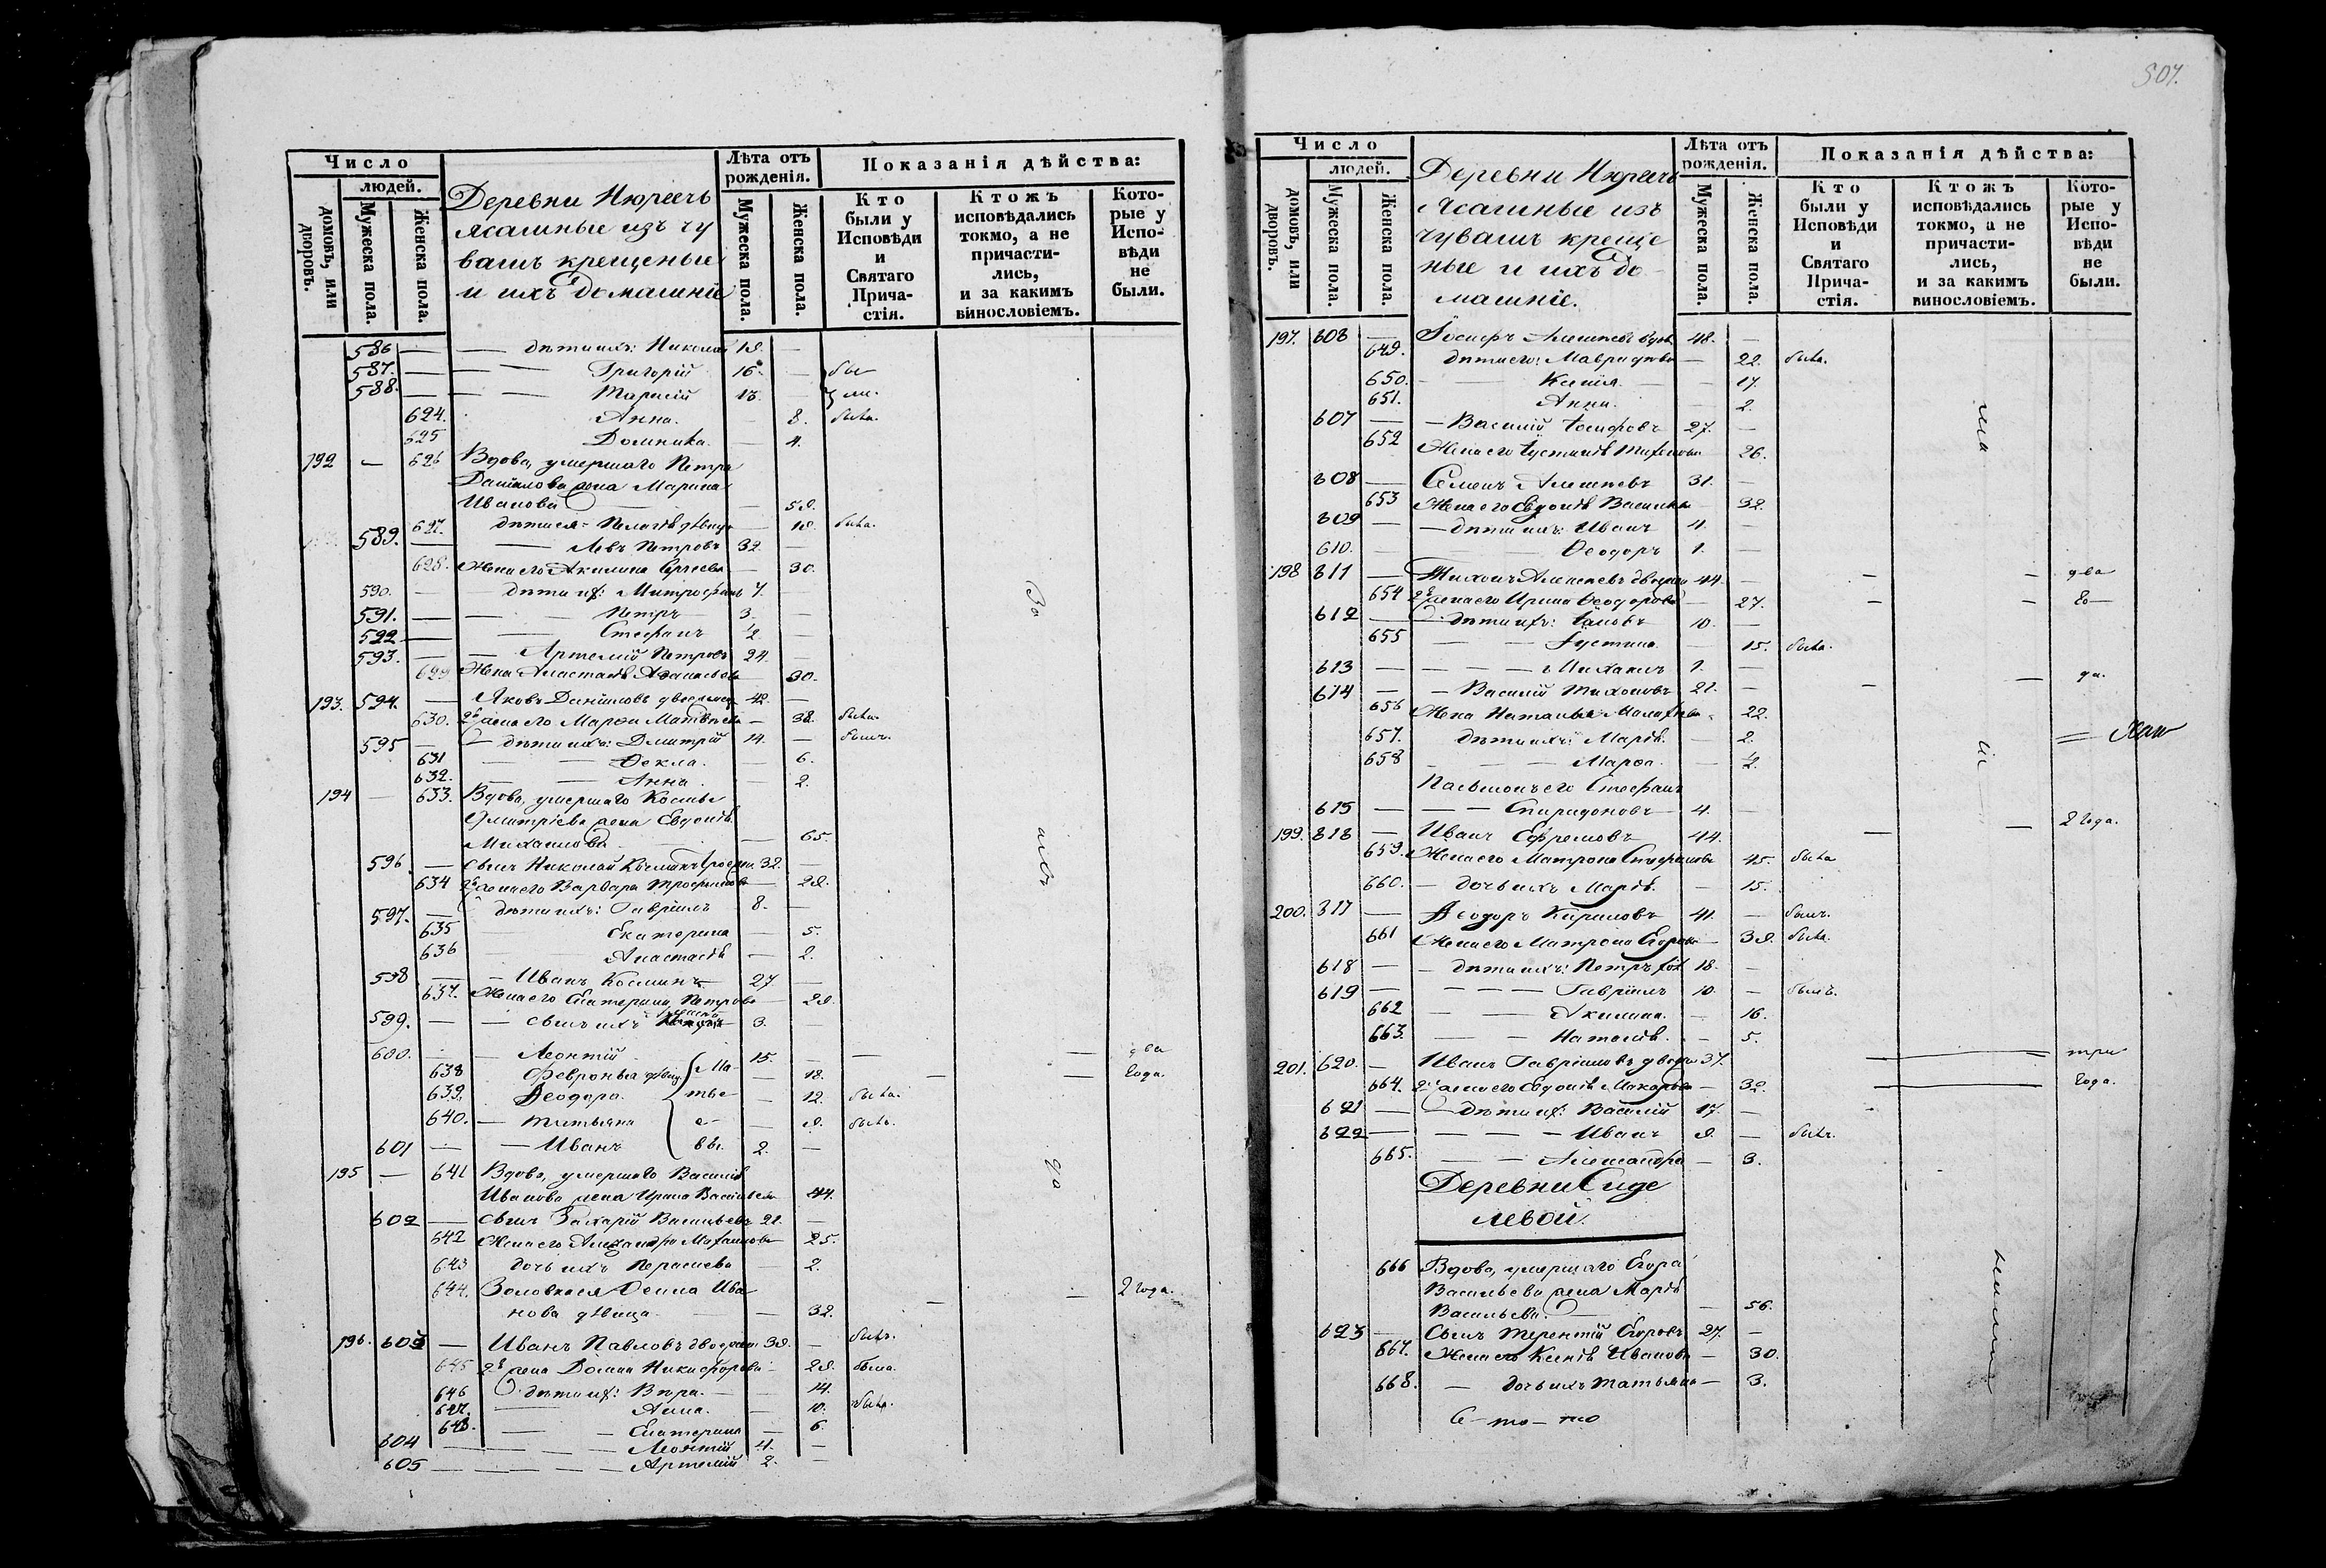 Число
людей.
домовъ, или дворовъ.
Мужеска пола.
Женска пола.
Деревни Нюргечь
ясашные изъ чу
вашъ крещеные
и ихъ домашніе
Лѣта отъ рожденія.
Мужеска пола.
Женска пола.
Показанія дѣйства:
Кто были у Исповѣди и Святаго Причастія.
Ктожъ исповѣдались токмо, а не причастились, и за какимъ винословіемъ.
Которые у Исповѣди не были.
586 — — дѣти ихъ: Николай 19. —
587. — — Григорій 16. — бы
588. — — — Тарасій 13. — ли.
624. Анна. — 8. была.
625 Домника. — 4.
192 — 626 Вдова, умершаго Петра
Данилова жена Марина
Иванова — 59.
627. дѣти ея: Пелагѣя дѣвица — 19. была.
589. — — Левъ Петровъ 32. —
628. Жена его Акилина Сергеева — 30.
590. — — дѣти их: Митрофанъ 7. —
591. — — — Петръ 3. —
592 — — Стефанъ ½ —
593. — — Артемій Петровъ 24. —
629 Жена Анастасія Афанасьева 30.
193. 594. — Яковъ Даниловъ двоежен. 42. —
630. 2я жена его Марфа Матвѣева — 38. была.
595 — — дѣти ихъ: Дмитрій 14. — былъ.
631 — — Ѳекла. — 6.
632. — — Анна. — 2.
194 — 633. Вдова, умершаго Космы
Дмитріева жена Евдокія
Михайлова — — 65.
596. — Сынъ Николай Косминъ двоежен. 32. —
634 2я жена его Варвара Трофимова — 29.
597. — дѣти ихъ: Гавріилъ 8. —
635 Екатерина — 5.
636 — — Анастасія — 2.
598 — — Иванъ Косминъ 27 —
637. Жена его Екатерина Петрова — 29.
599. — — сынъ ихъ 3. —
600. — — Леонтій 15. — — — два
638 Февронья дѣвиц. Ма- — 18. — — года.
639. Ѳеодора. тве- — 12. была.
640. — Татьяна е- — 9. была.
601 — — Иванъ вы. 2. —
195 — 641 Вдова, умершаго Василія
Иванова жена Ирина Васильева 44.
602 — Сынъ Захарій Васильевъ 21. —
642 Жена его Александра Михайлова 25.
643 дочь ихъ Парасковья — 2.
644. Золовка ея Ѳекла Ива
нова дѣвица. — — 32. — — 2 года.
196. 603 — Иванъ Павловъ двоежен 39. — былъ.
645 2я жена Домна Никифорова 29. была.
646 дѣти их: Вѣра. — — 14.
647. — Анна. — 10. была.
648. — — Екатерина — 6.
604 — — — — Леонтій 4. —
605 — — — — Артемій 2. —
За
алъ
до
507.
Число
людей.
домовъ, или дворовъ.
Мужеска пола.
Женска пола.
Деревни Нюргечь
Ясашные изъ
чувашъ креще
ные и ихъ до-
машніе.
Лѣта отъ рожденія.
Мужеска пола.
Женска пола.
Показанія дѣйства:
Кто были у Исповѣди и Святаго Причастія.
Ктожъ исповѣдались токмо, а не причастились, и за какимъ винословіемъ.
Которые у Исповѣди не были.
197. 606 — Іосифъ Алексѣевъ вдов. 48. —
649. дѣти его: Мавра дѣвка — 22. была.
650. — — Ксенія. — — 17.
651. Анна. — 2.
607 — — Василій Іосифовъ 27. —
652 Жена его Іустинія 26.
608 — Семенъ Алексѣевъ 31. —
653 Жена его Евдокія Васильева 32.
609 — — дѣти ихъ: Иванъ 4. —
610. — — — Ѳеодоръ 1. —
198 611 — Тихонъ Алексѣевъ двоежен 44. — — — два
654 2я жена его Ирина Ѳеодорова — 27. — — го—
612 — дѣти их: Іаковъ 10. —
655 — — Іустина — 15. была.
613 — — — — Михаилъ 1. —
614 — — Василій Тихоновъ 21. — — — да.
656 Жена Наталья Малафѣева 22.
657. дѣти ихъ: Марія. — 2.
658 — — — Марфа. — ½.
Пасынокъ его Стефанъ
615 — — — Спиридоновъ 4. —
199. 616 — Иванъ Ефремовъ 44. — — 2 года.
659. Жена его Матрона Стефанова 45. была
660. — дочь ихъ Марія. — 15.
200. 617 — Ѳеодоръ Кириловъ 41. — былъ.
661 Жена его Матрона Егорова 39. была.
618 — — дѣти ихъ: Петръ 18. —
619 — — — — Гавріилъ 10. — былъ.
662 — — Акилина. — 16.
663. — — Наталія. — 5.
201. 620. — Иванъ Гавріиловъ двоеж 37. — — три
664. 2я жена его Евдокія Макарова — 32. — года.
621 — — дѣти их: Василій 17. —
622 — — — — Иванъ 9. — былъ.
665. — — Александра — 3.
Деревни Сиде
левой.
666 Вдова, умершаго Егора
Васильева жена Марія
Васильева. — — 56.
623 — Сынъ Терентій Егоровъ 27. —
667. Жена его Ксенія Иванова — 30.
668. — дочь ихъ Татьяна — 3.
С — то — тно